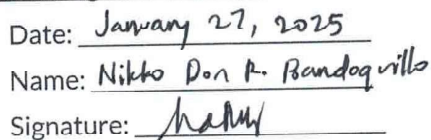 Date: January 27, 2025
Name: Nikko Don R. Bandoquillo
Signature: